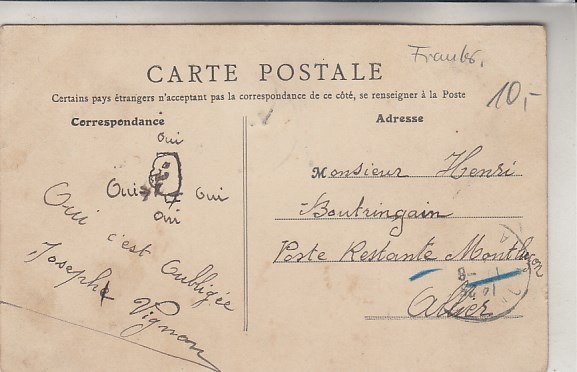 Frankr.
CARTE POSTALE
10,-
Certains pays étrangers n'acceptant pas la correspondance de ce côté, se renseigner à la Poste
Correspondance
Adresse
Oui
Oui
Oui
Oui
Oui
c'est
oubligée
Joseph
Vignon
Monsieur Henri
Boutringain
Poste Restante Montluçon
Allier